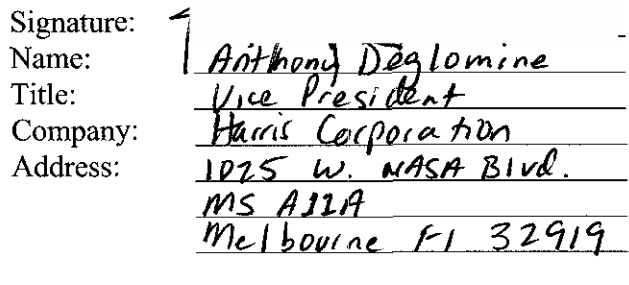 Signature:
Name: Anthony Deglomine
Title: Vice President
Company: Harris Corporation
Address: 1025 W. NASA Blvd.
MS A11A
Melbourne Fl 32919